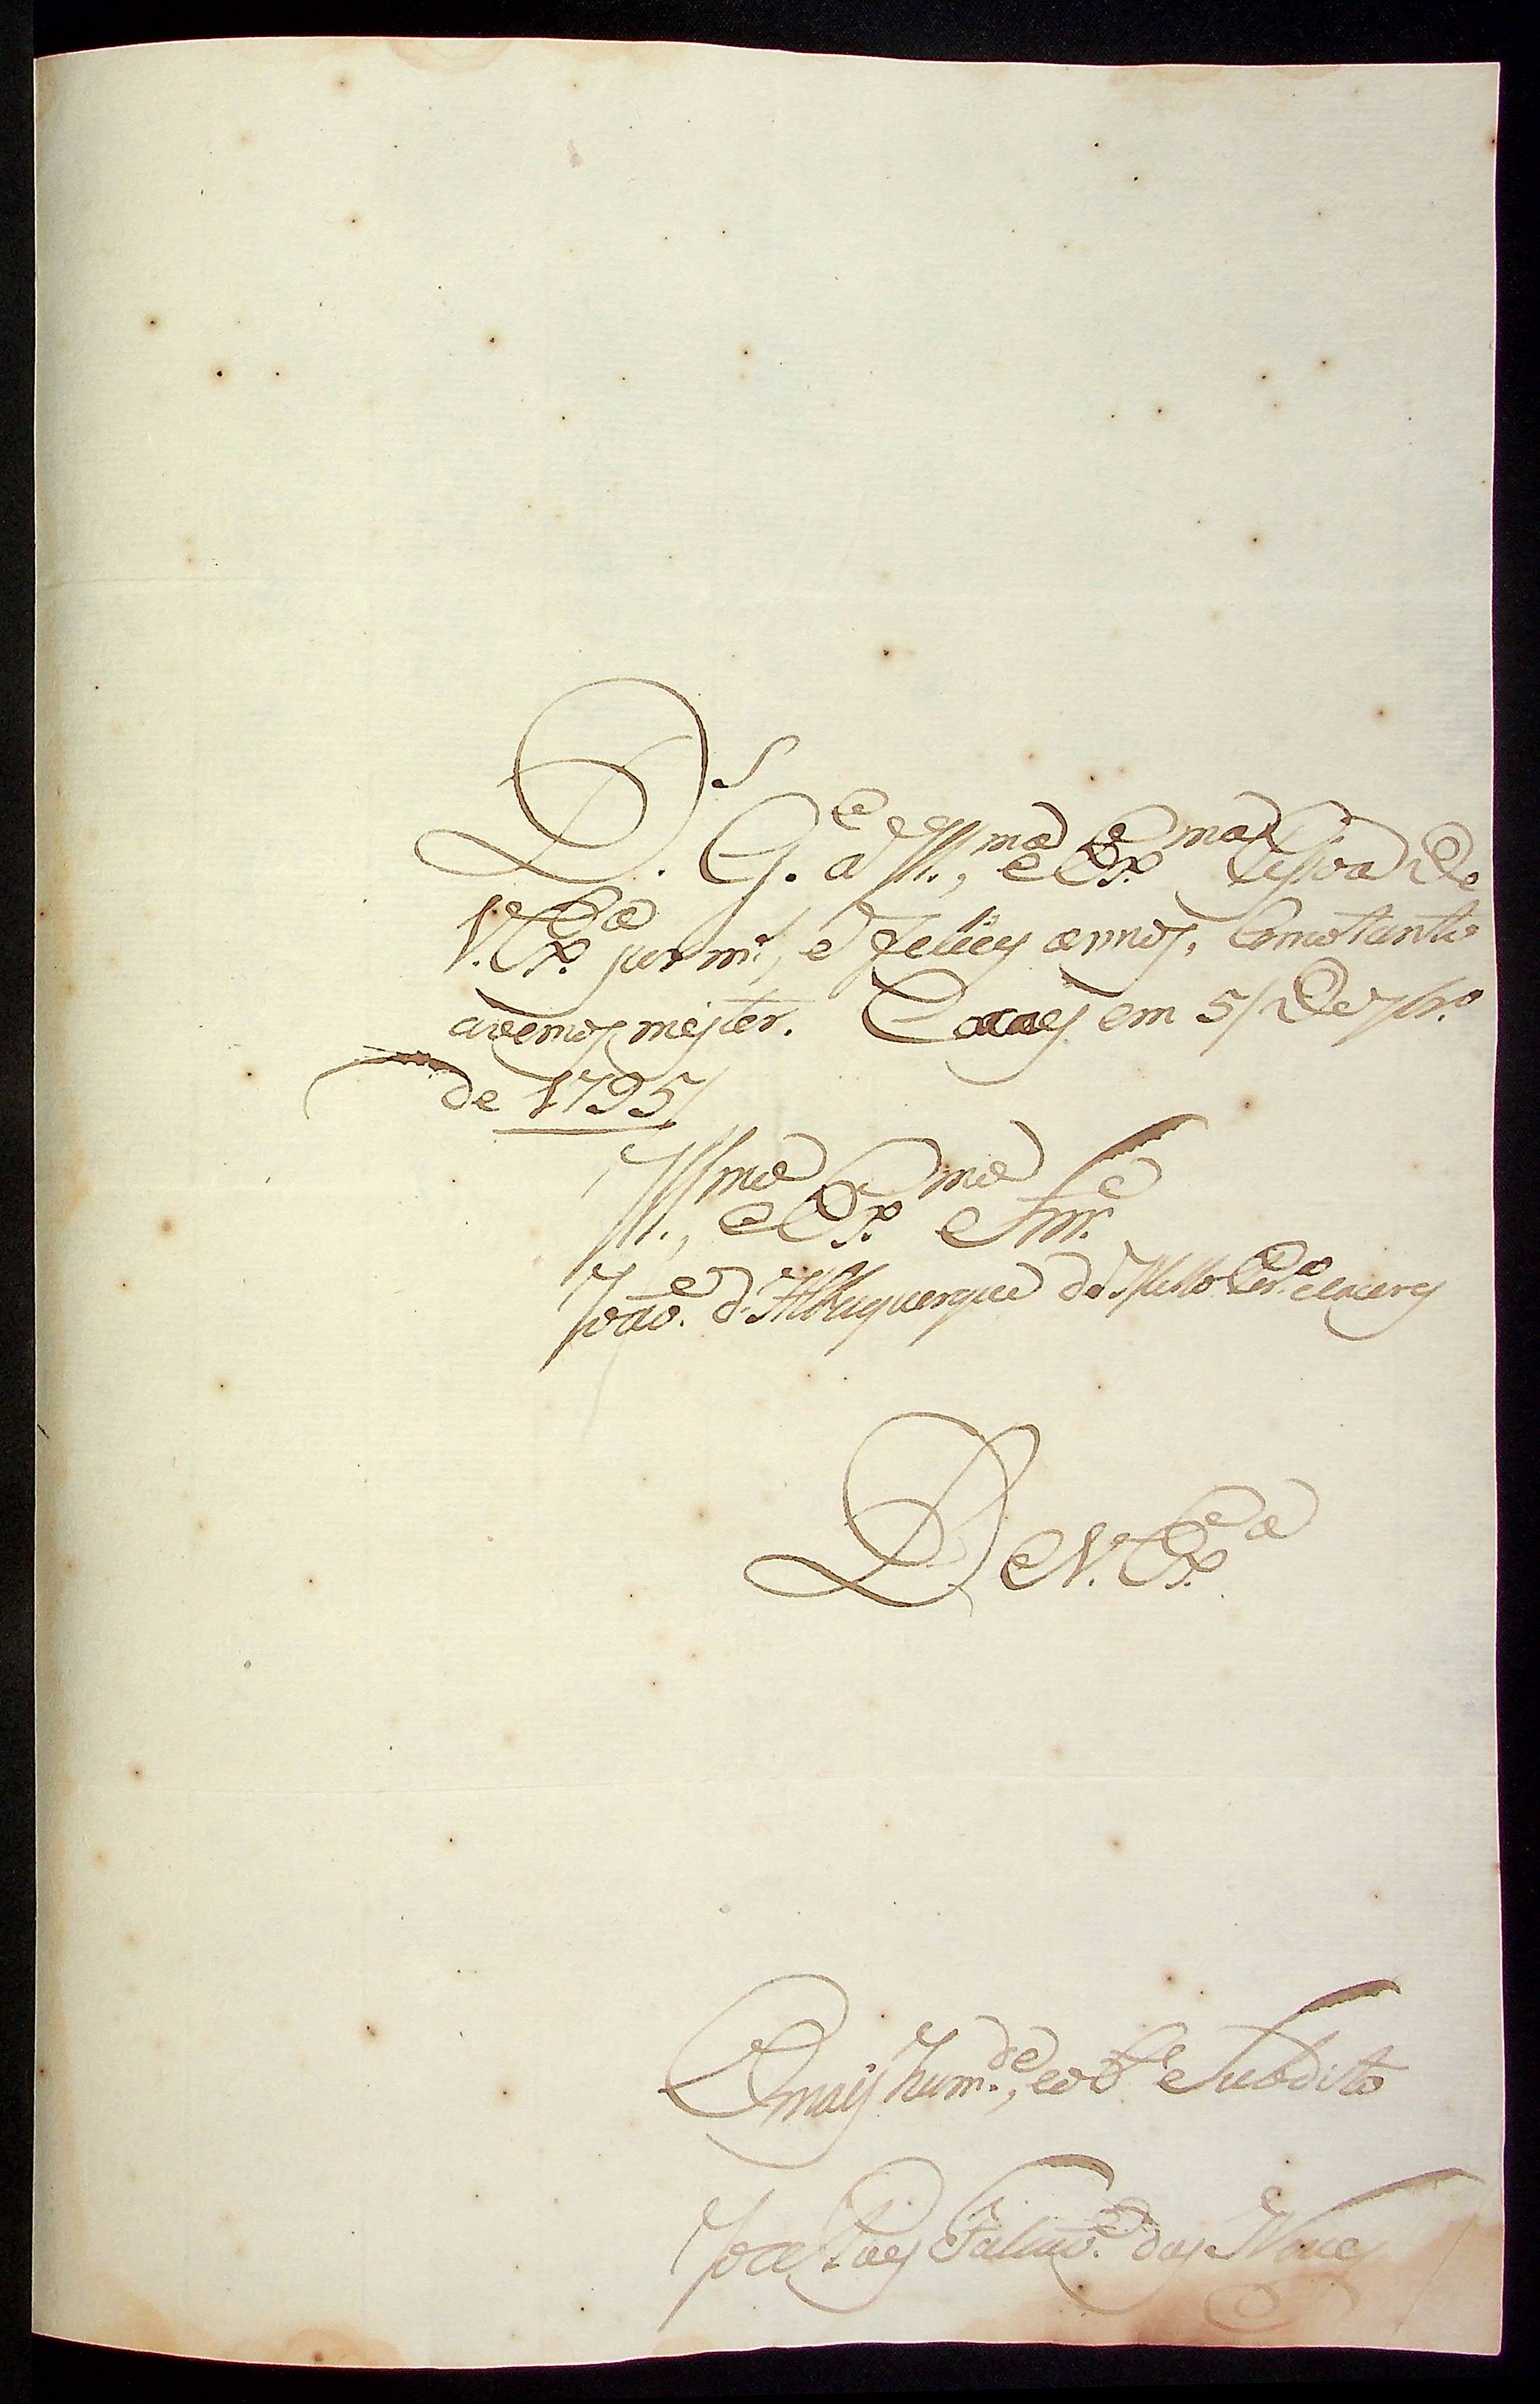 D.s G.e a Ill.ma, e Ex.ma Peſsoa de
V. Ex.ca por m.s, e felices annos, como tanto
avemos mester. em 5 de 7br.o
de 1795
Ill.mo e Ex.mo Snr.
João d'Albuquerque de Mello Per.a e Caceres
De V. Ex.ca
O mais hum.de, e ob.te Subdito
Joze Paes Falcão das Neves